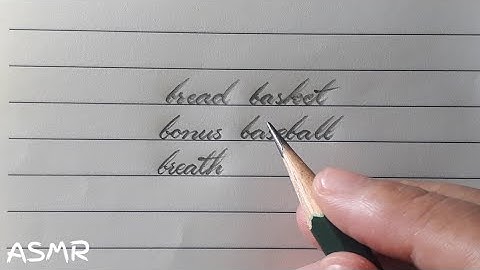 bread basket
bonus baseball
breath
ASMR